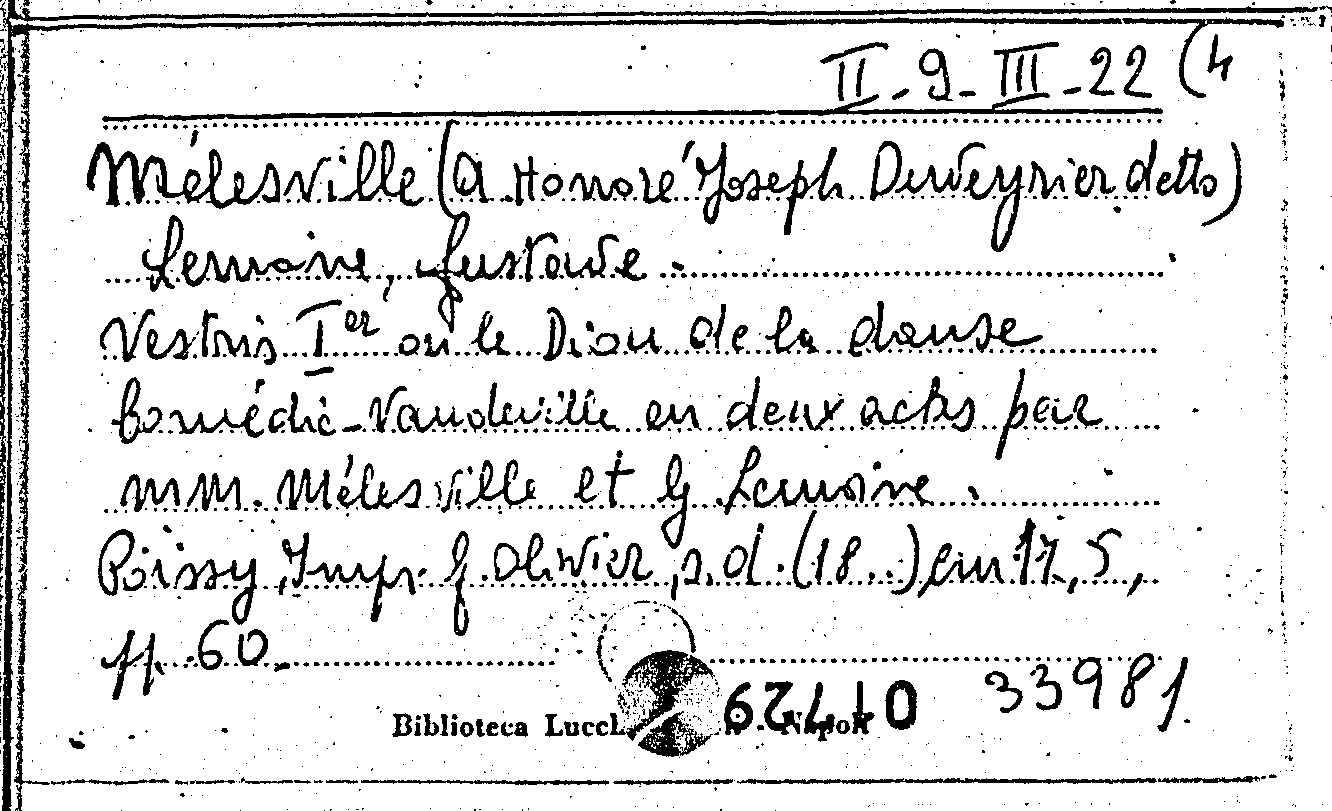 II-9-III-22 (4
Mélesville (A. Honoré Joseph Duveyrier detto)
Lemoine, Gustave.
Vestris Ier ou le Dieu de la danse
Comédie-Vaudeville en deux actes par
MM. Mélesville et G. Lemoine.
Poissy, Imp. G. Olivier, s.d. (18..), cm 17,5,
pp. 60.
33981
Biblioteca Lucch